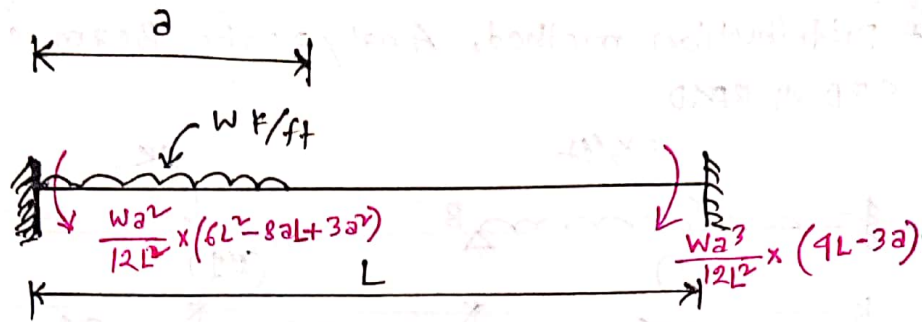 a
W k/ft
Wa²/12L² × (6L² - 8aL + 3a²)
Wa³/12L² × (4L - 3a)
L